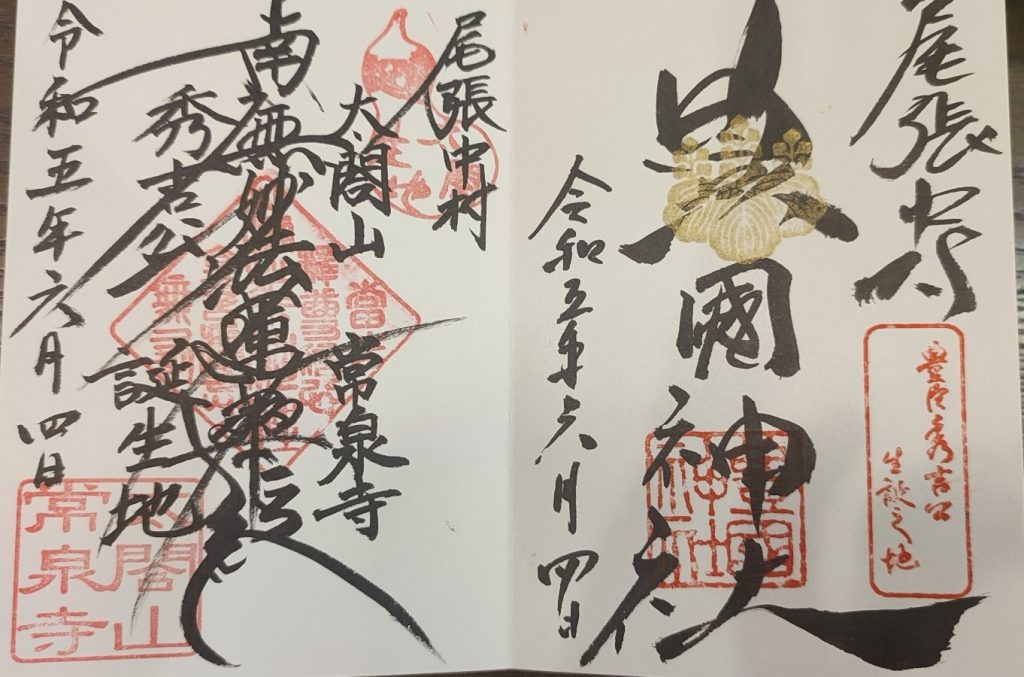 尾張中村
豊國神社
豊臣秀吉公
生誕之地
豊国
神社
令和五年六月四日
尾張中村
太閤山 常泉寺
南無妙法蓮華経
秀吉公 誕生地
令和五年六月四日
太閤山
常泉寺